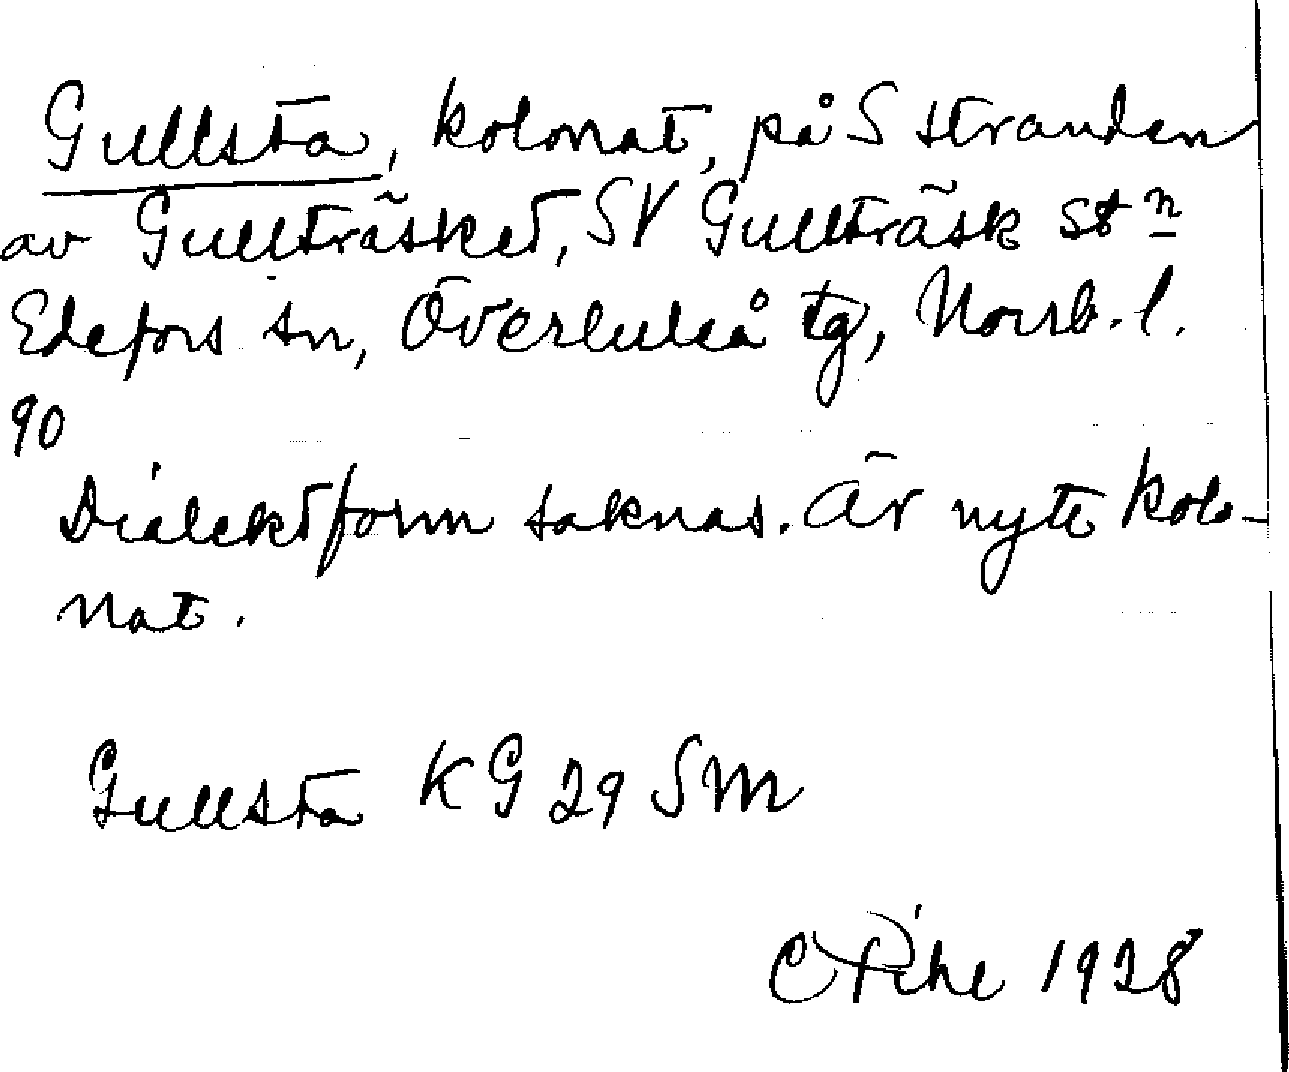 Gullsta, kolonat, på S stranden
av Gullträsket, SV Gullträsk stn
Edefors sn, Överluleå tg, Norrb. l.
90
Dialektform saknas. Är nytt kolo-
nat.
Gullsta KG 29 SM
C Pihl 1928